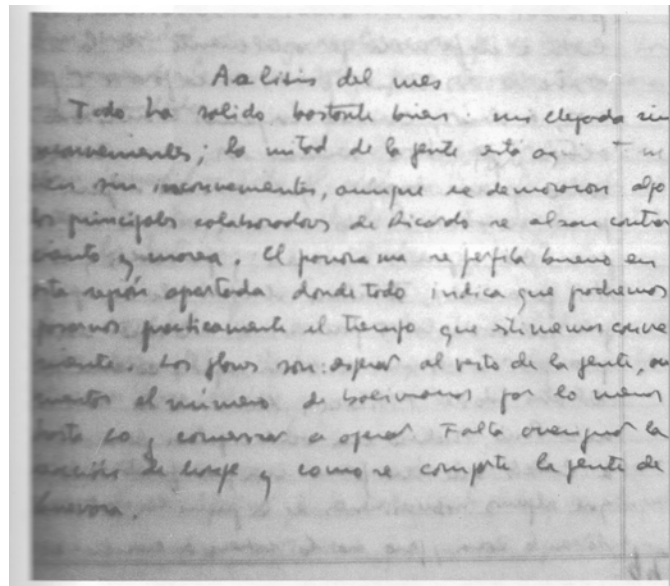 Análisis del mes
Todo ha salido bastante bien: mi llegada sin
inconvenientes; la mitad de la gente está aq
sin inconvenientes, aunque se demoraron algo
los principales colaboradores de Ricardo se alzan contra
viento y marea. El panorama se perfila bueno en
esta región apartada donde todo indica que podremos
pasarnos prácticamente el tiempo que estimemos conve
niente. Los planes son: esperar al resto de la gente, au
mentar el número de bolivianos por lo menos
hasta 20 y comenzar a operar. Falta averiguar la
reacción de Monje y como se comporta la gente de
Guevara.